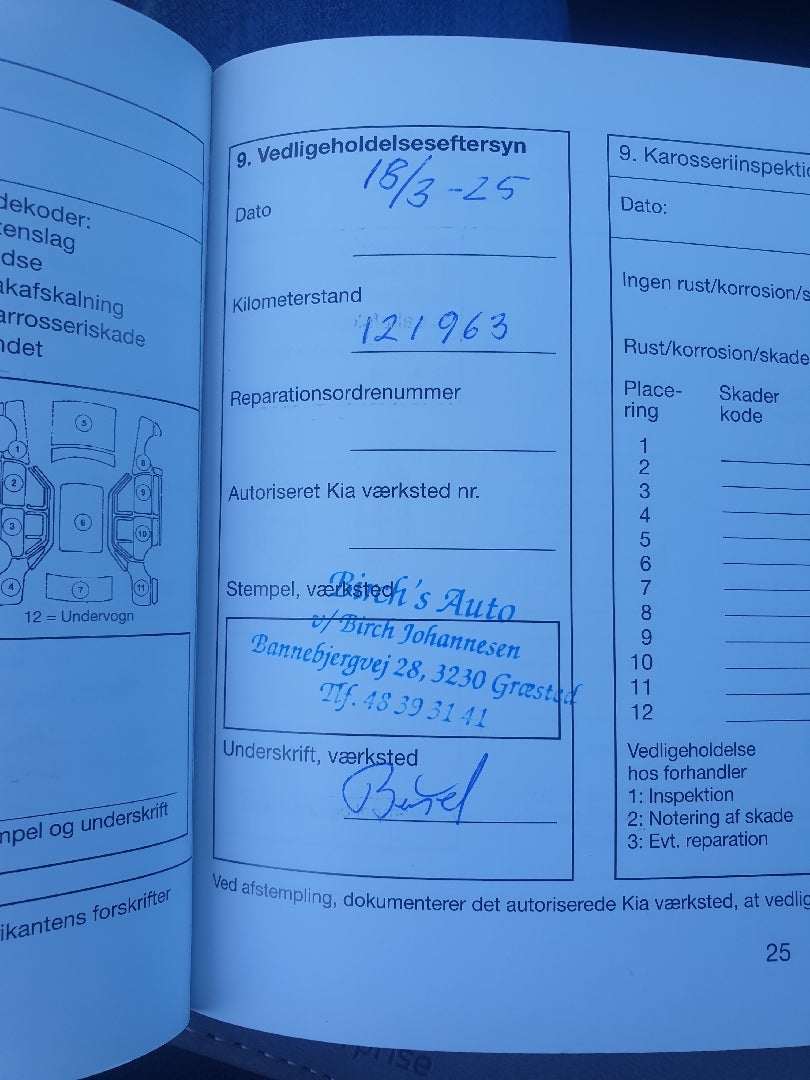 dekoder:
tenslag
dse
akafskalning
arrosseriskade
ndet
5
1
8
2
9
6
3
10
4
7
11
12 = Undervogn
mpel og underskrift
ikantens forskrifter
9. Vedligeholdelseseftersyn
18/3-25
Dato
Kilometerstand
121963
Reparationsordrenummer
Autoriseret Kia værksted nr.
Stempel, værksted
Birch's Auto
v/ Birch Johannesen
Bannebjergvej 28, 3230 Græsted
Tlf. 48 39 31 41
Underskrift, værksted
Ved afstempling, dokumenterer det autoriserede Kia værksted, at vedlig
9. Karosseriinspektio
Dato:
Ingen rust/korrosion/s
Rust/korrosion/skade
Place- Skader
ring kode
1
2
3
4
5
6
7
8
9
10
11
12
Vedligeholdelse
hos forhandler
1: Inspektion
2: Notering af skade
3: Evt. reparation
25